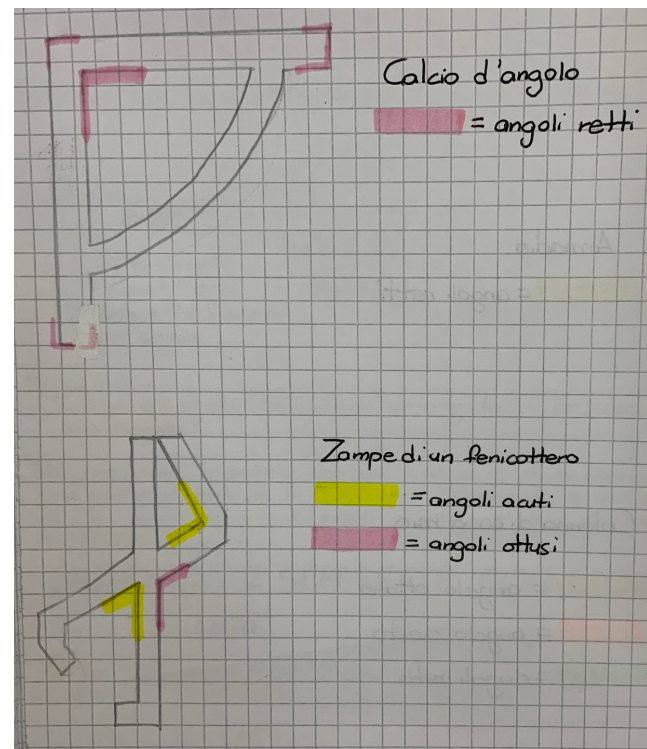 Calcio d'angolo
= angoli retti
Zampe di un fenicottero
= angoli acuti
= angoli ottusi